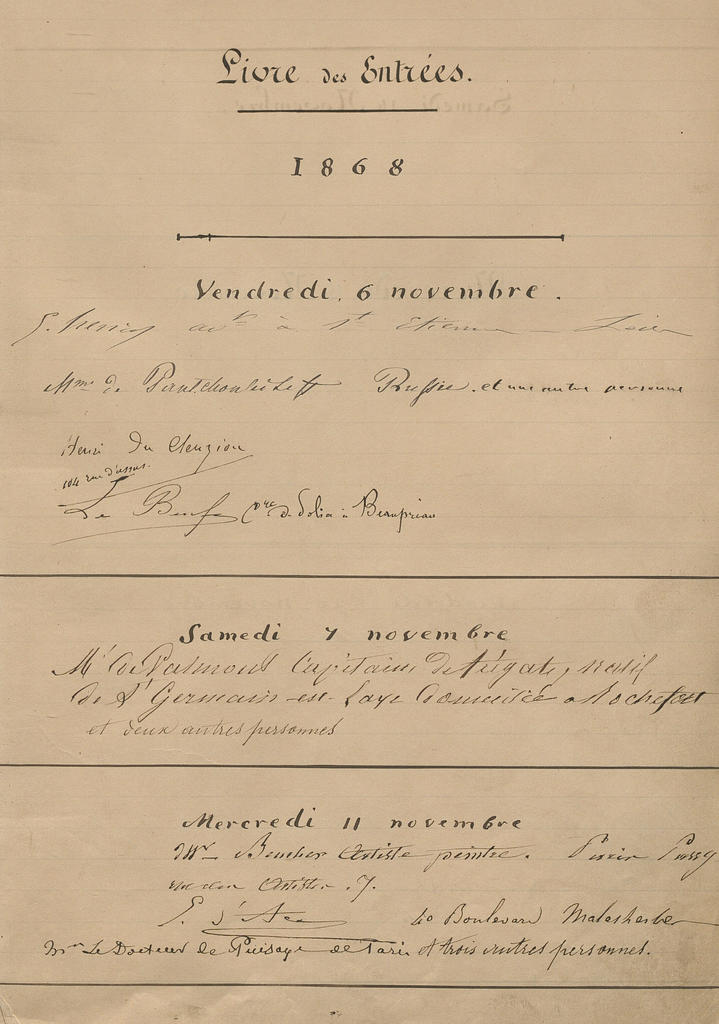 Livre des Entrées.
1868
Vendredi, 6 novembre.
à St Etienne Loire
Mme de Russie. et une autre personne
Henri Du Cleuziou
104 rue d'assas.
Le à Beaupréau
Samedi 7 novembre
Mr de Valmont Capitaine de frégate, natif
de St Germain-en-Laye Domicilié à Rochefort
et deux autres personnes
Mercredi 11 novembre
Mr Boucher Artiste peintre. Passy
7.
40 Boulevard Malesherbes
Mr Le Docteur de Puisaye de Paris et trois autres personnes.